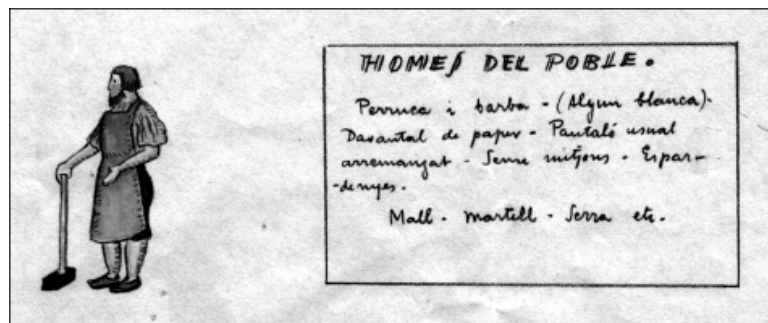 HOMES DEL POBLE.
Perruca i barba - (Algun blanca).
Davantal de paper - Pantaló usual
arremangat - Sense mitjons - Espar-
-denyes.
Mall - martell - Serra etc.